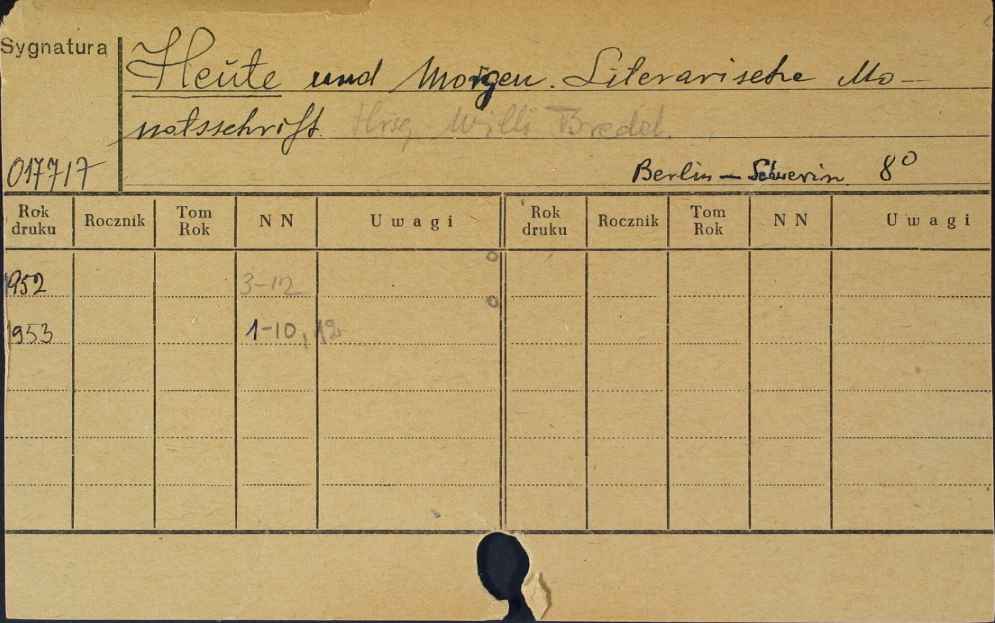 Sygnatura
Heute und Morgen. Literarische Mo-
natsschrift. Hrsg. Willi Bredel.
017717
Berlin – Schwerin 8°
Rok druku Rocznik Tom Rok NN Uwagi Rok druku Rocznik Tom Rok NN Uwagi
1952 3-12
1953 1-10, 12